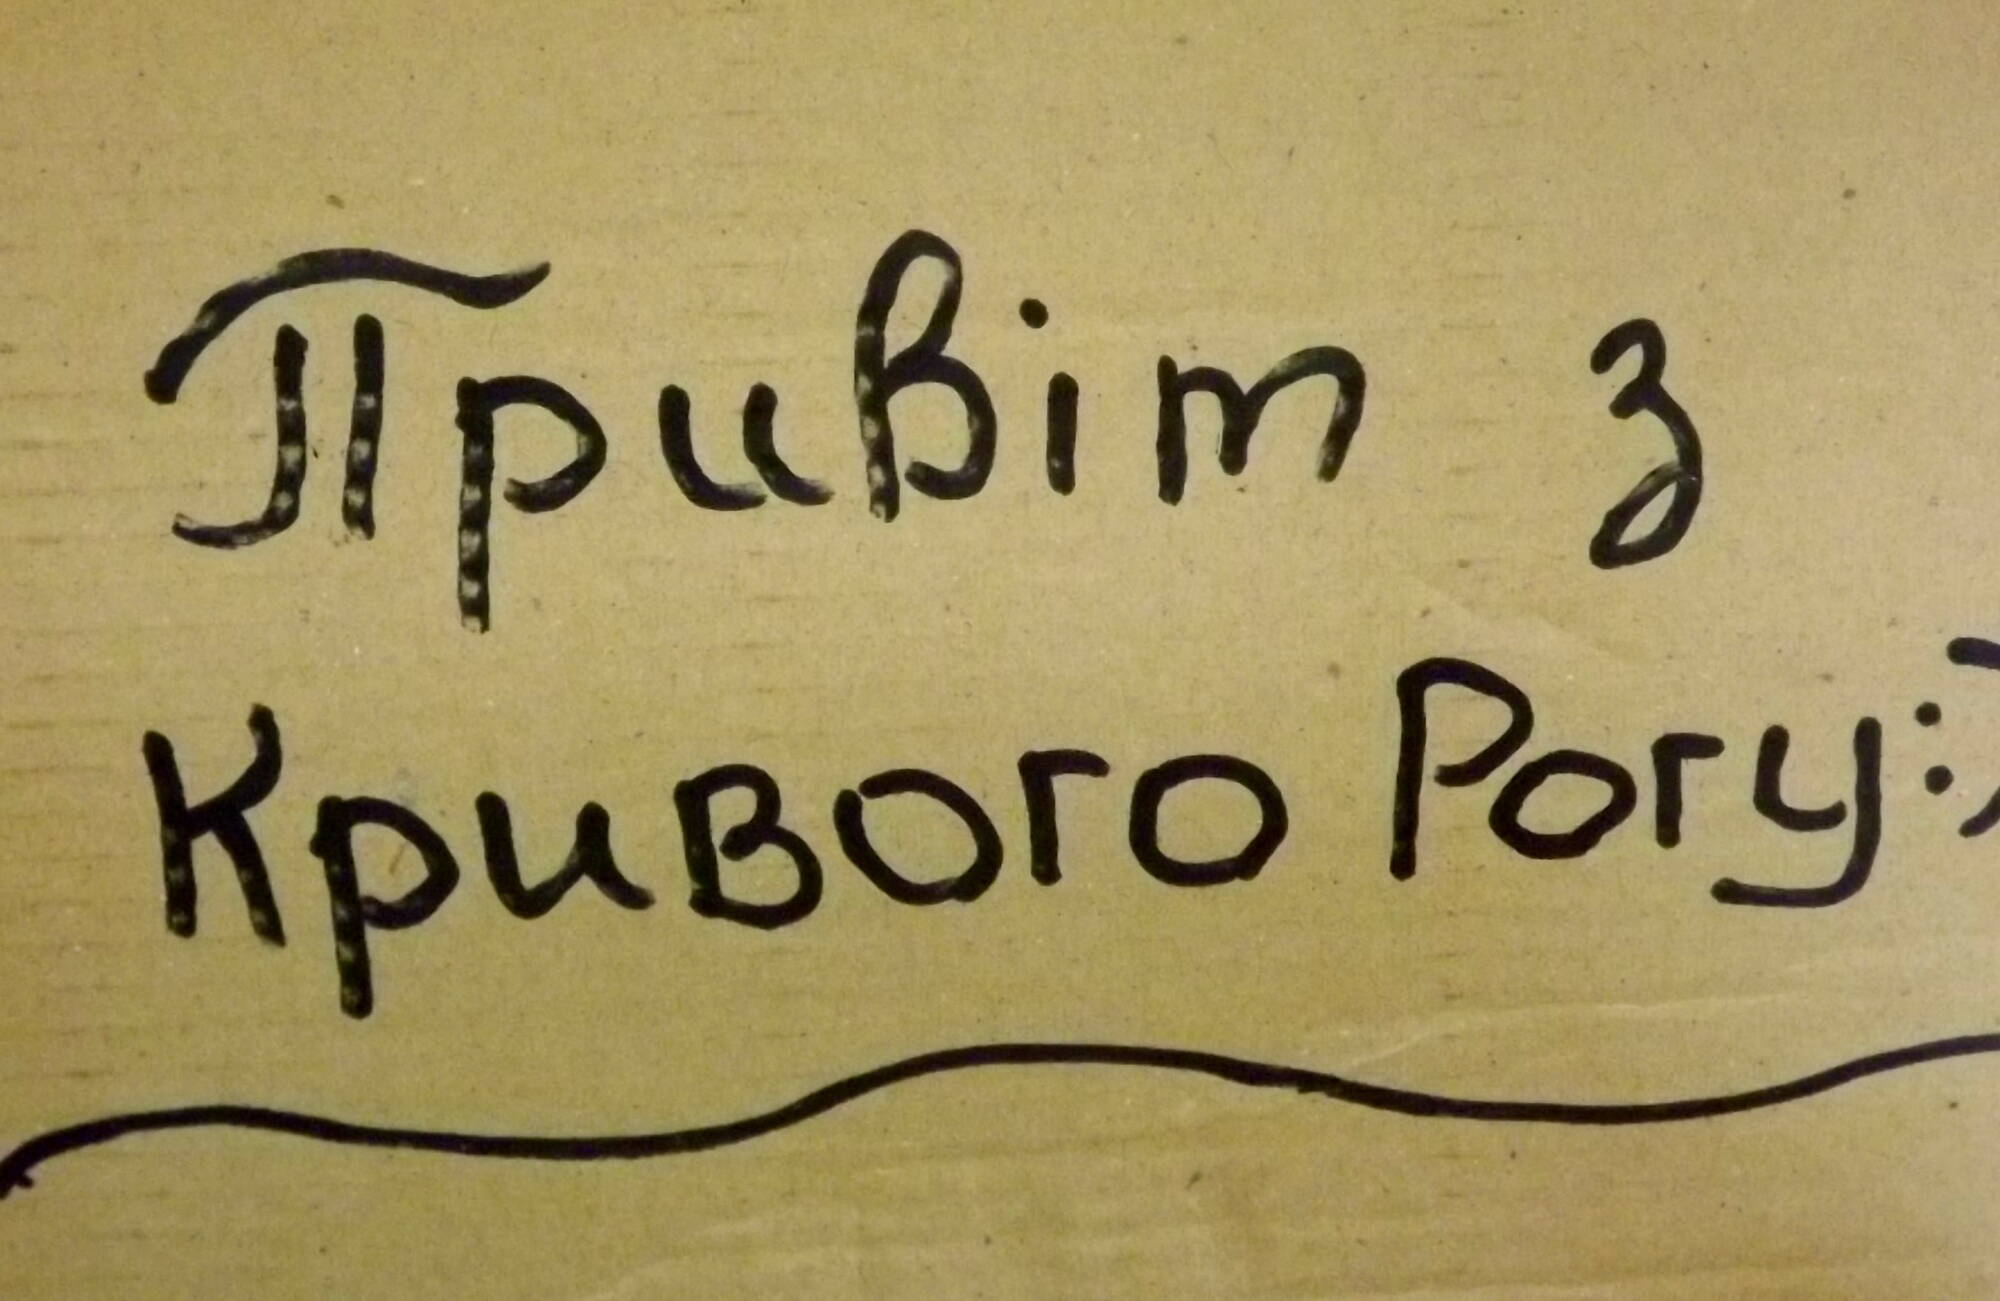 Привіт з
Кривого Рогу:)